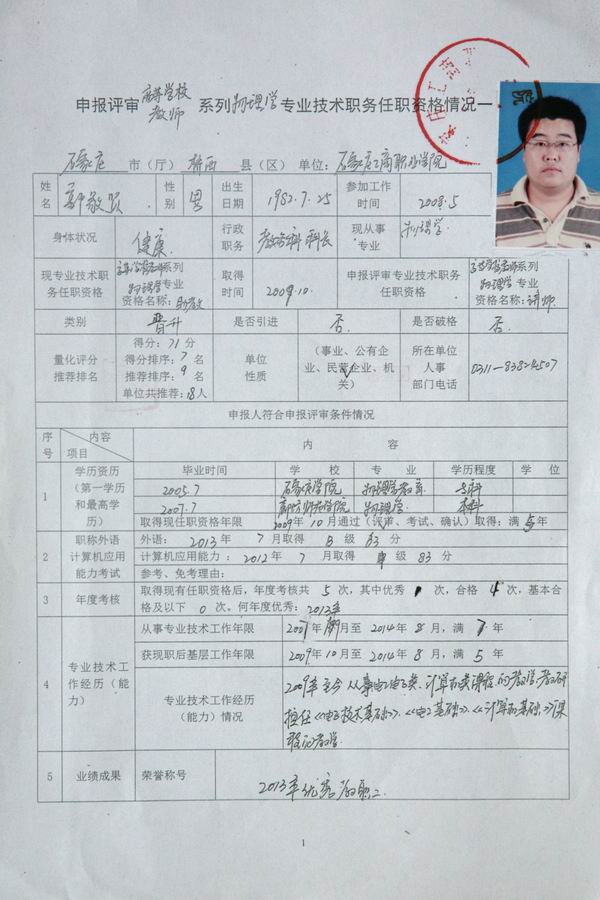 申报评审高等学校教师系列物理学专业技术职务任职资格情况一
石家庄 市（厅） 县（区） 单位：石家庄工商职业学院
姓名 敬 性别 男 出生日期 1982.7.25 参加工作时间 2008.5
身体状况 健康 行政职务 教务科科长 现从事专业 物理学
现专业技术职务任职资格 高等学校教师系列 物理学专业 资格名称：助教 取得时间 2009.10. 申报评审专业技术职务任职资格 高等学校教师系列 物理学专业 资格名称：讲师
类别 晋升 是否引进 否 是否破格 否
量化评分推荐排名 得分：71分 得分排序：7名 推荐排序：9名 单位共推荐：18人 单位性质 （事业、公有企业、民营企业、机关） 所在单位人事部门电话 0311-83824507
申报人符合申报评审条件情况
序号 内容 项目 内 容
1 学历资历（第一学历和最高学历） 毕业时间 学 校 专 业 学历程度 学 位
2005.7 石家庄学院 物理学教育 专科
2007.7 廊坊师范学院 物理学 本科
取得现任职资格年限 2009年10月通过（评审、考试、确认）取得：满5年
2 职称外语计算机应用能力考试 外语：2013年 7月取得 B级 63分
计算机应用能力：2012年 7月取得 级 83分
参考、免考理由：
3 年度考核 取得现有任职资格后，年度考核共 5 次，其中优秀 1 次，合格 4 次，基本合格及以下 0 次。何年度优秀：2013年
4 专业技术工作经历（能力） 从事专业技术工作年限 2007年 月至2014年8月，满7年
获现职后基层工作年限 2009年10月至2014年8月，满5年
专业技术工作经历（能力）情况 2009年至今从事电工电子类、计算机类课程的教学教研
担任《电子技术基础》、《电工基础》、《计算机基础》课
程的教学。
5 业绩成果 荣誉称号 2013年优秀教职工
1